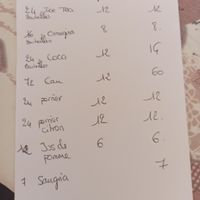 24 Ice Tea 12 12
Bouteilles
16 Orangina 8 8.
Bouteilles
24 Coca 12 16
Bouteilles
72 Eau 12 60
24 pomier 12 12
24 pomier 12 12.
citron
12 Jus de 6 6.
pomme
7
7 Sangria